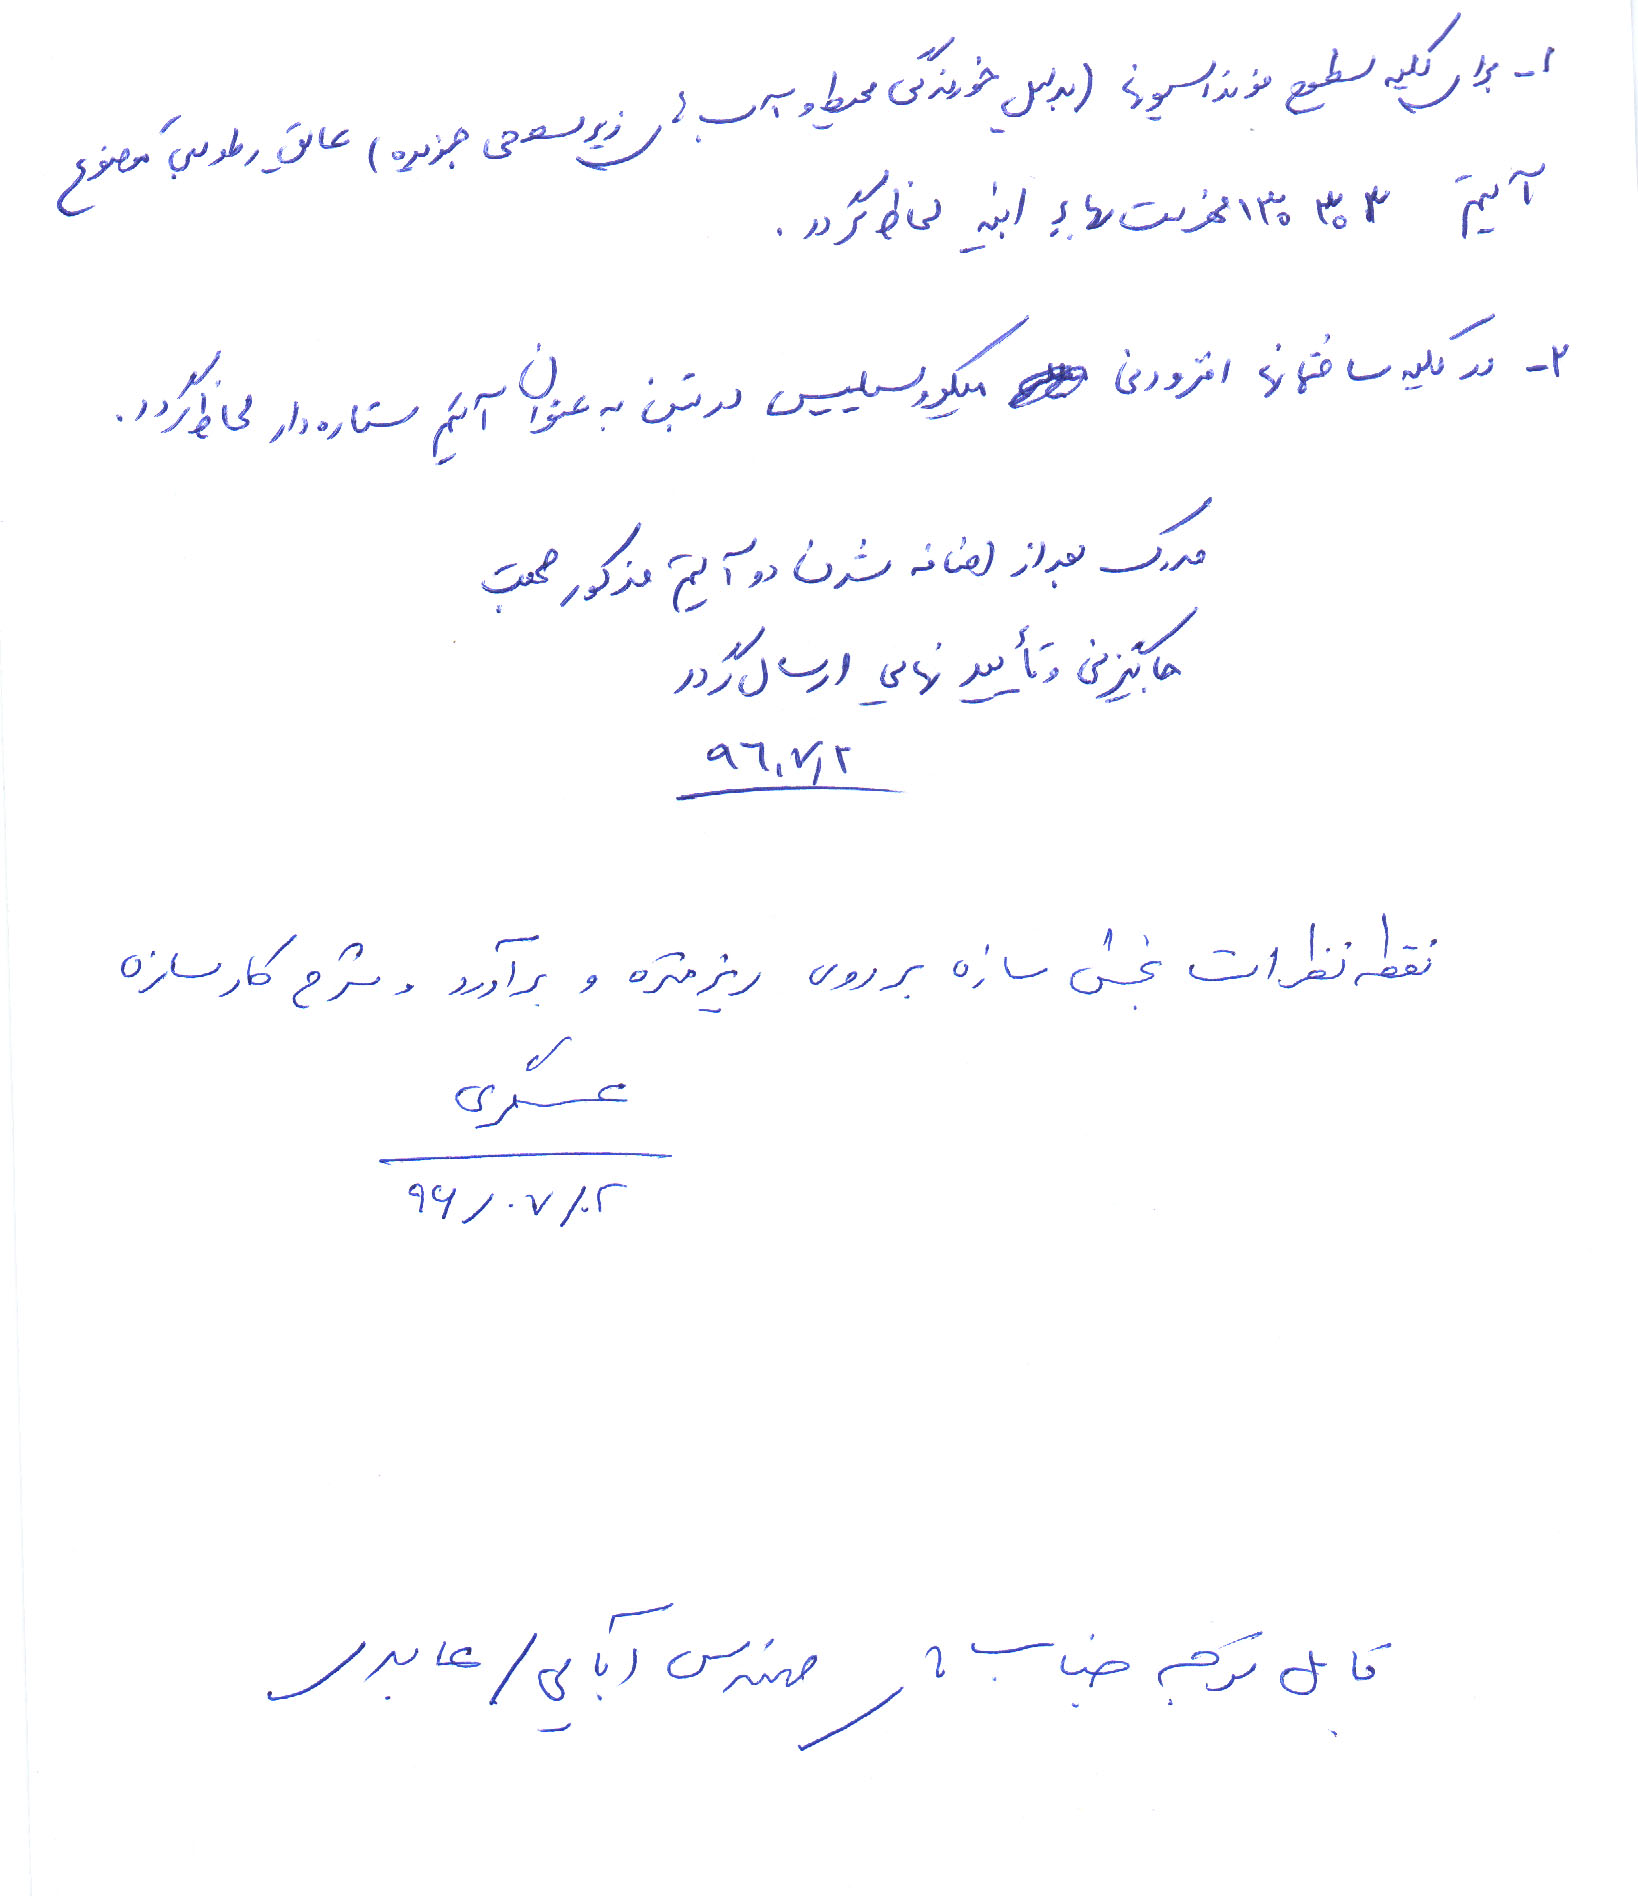 ۱- برای کلیه سطوح فونداسیونها (بدلیل خورندگی محیط و آب های زیرسطحی جزیره) عایق رطوبتی موضوع
آیتم ۱۳۰۳۰۳ فهرست بهاء ابنیه لحاظ گردد.
۲- در کلیه ساختمانها افزودنی میکروسیلیس در بتن به عنوان آیتم ستاره دار لحاظ گردد.
مدرک بعد از اضافه شدن دو آیتم مذکور جهت
جایگزینی و تأیید نهایی ارسال گردد
۹۶/۷/۲
نقطه نظرات بخش سازه بر روی ریز متره و برآورد و شرح کار سازه
عسگری
۹۶/۰۷/۰۲
قابل توجه جناب مهندس آبایی/عابدی